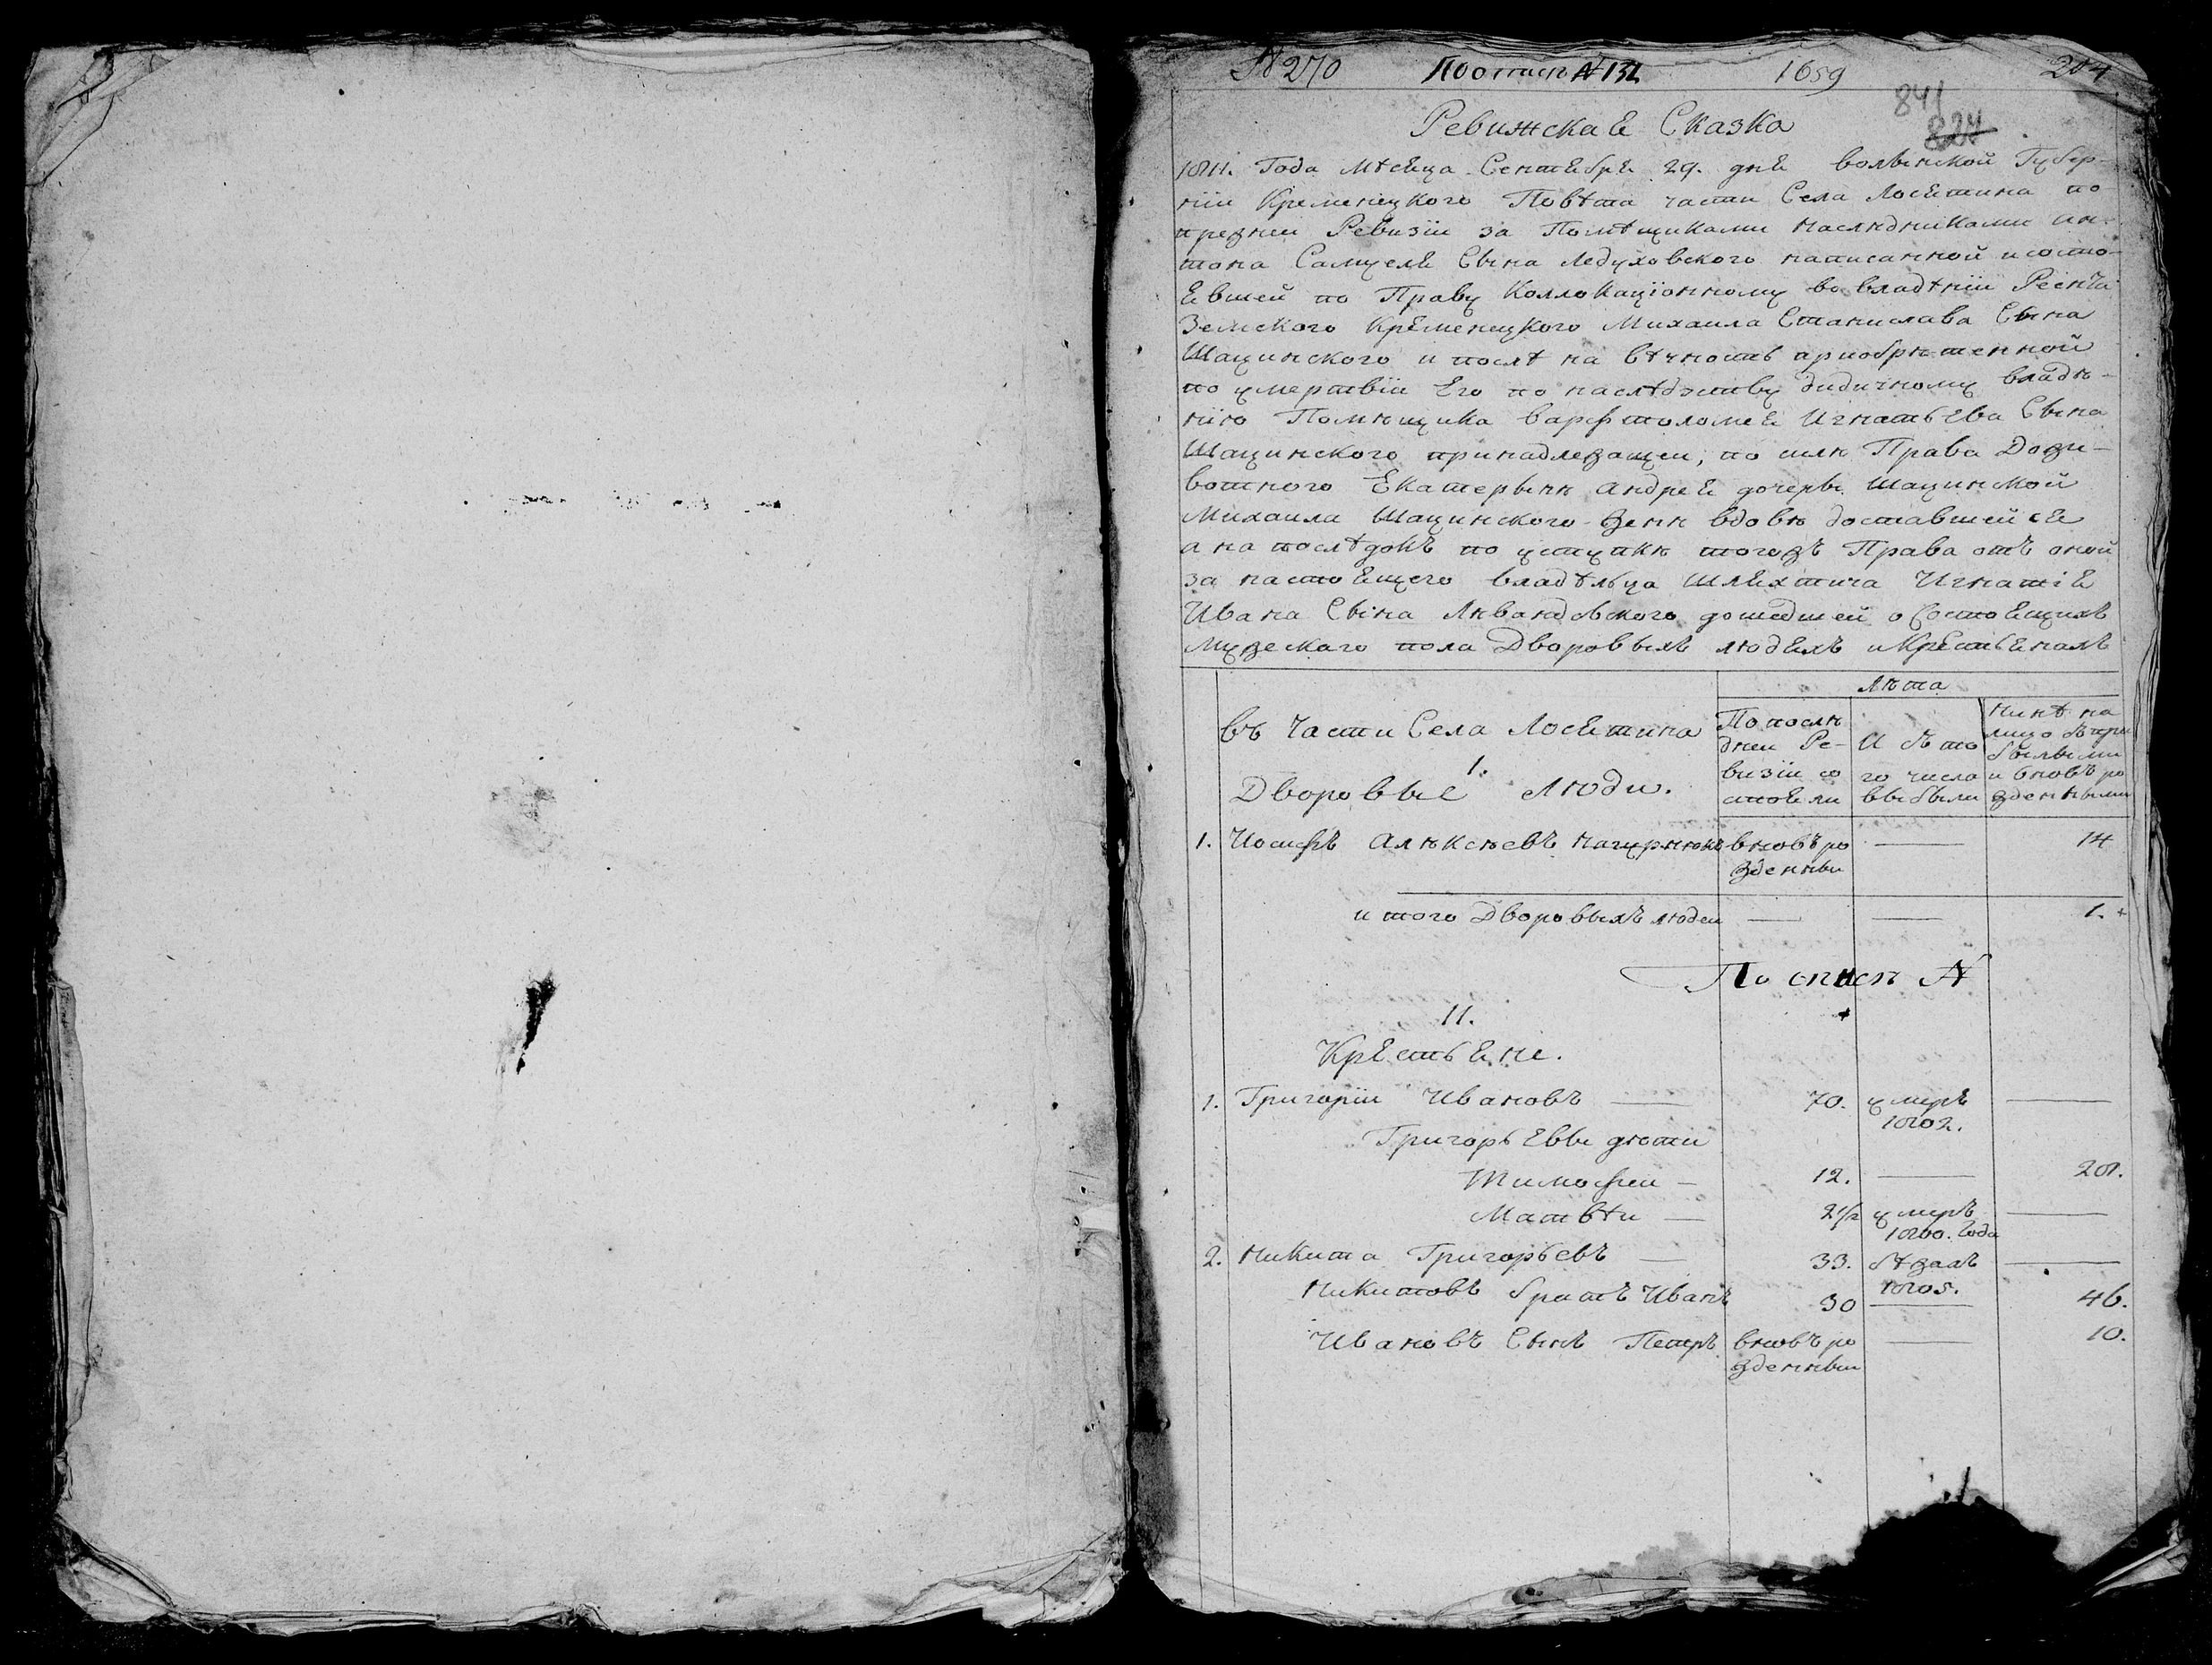 № 270 По описи № 132 1659 204
841
824
Ревижскаѣ Сказка
1811. Года мѣсеца Сентебрѣ 29. днѣ волынской Губер-
ніи Кременецкого Повѣта части Села Лосѣтина по
прежнеи Ревизіи за Помѣщиками наслѣдниками Ан-
тона Самуелѣ Сына Ледуховского написанной и состо-
ѣвшей по Праву Коллокаціонному во владѣніи
Земского Кременецкого Михаила Станислава Сына
Шацинского и послѣ на вѣчность приобрѣтенной
по умертвіи Его по наслѣдзтву дидичному владѣ-
нію Помѣщика варфтоломеѣ Игнатьева Сына
Шацинского принадлежащеи, по силѣ Права Дожи-
вотного Екатерынѣ Андреѣ дочеры Шацинской
Михаила Шацинского женѣ вдовѣ доставшейсѣ
а на послѣдокъ по уступкѣ тогожъ Права отъ оной
за настоѣщего владѣльца шлѣхтича Игнатіѣ
Ивана Сына дошедшей о Состоѣщихъ
Мужескаго пола Дворовыхъ людѣхъ и Крѣстьѣнахъ
Лѣта
въ Части Села Лосѣтина
1.
Дворовые Люди.
По послѣ
днеи Ре-
визіи со
стоѣли
И съ то
го числа
выбыли
Нинѣ на
лицо съ при
былыми
и вновъ ро
жденными
1. Иосифъ Алѣксѣевъ вновъ ро — 14
жденныи
итого Дворовыхъ людеи — — 1.
По описи №
11.
Крѣстьѣне.
1. Григоріи Ивановъ — 70. умеръ —
1802.
Григорьевы дѣти
Тимофеи — 12. — 21.
Матвѣи — 2½ умеръ —
1800. Года
2. Никита Григорьевъ — 33. бѣжалъ —
1805.
Никитовъ братъ Иванъ 30 — 46.
Ивановъ Сынъ Петръ вновъ ро — 10.
жденныи